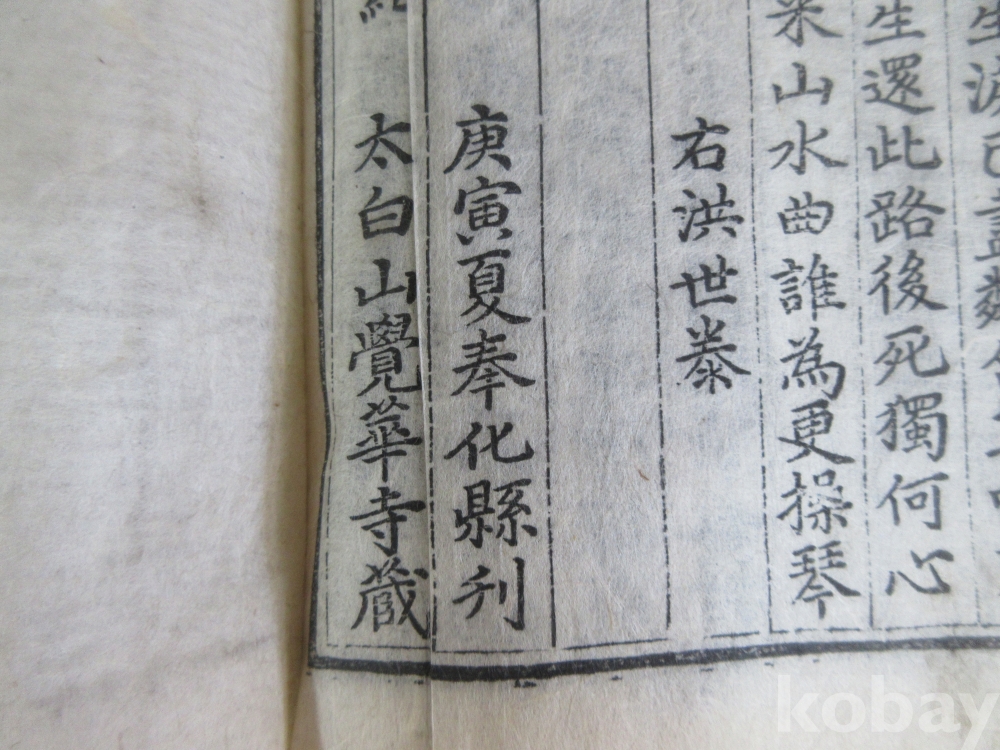 生還此路後死獨何心
山水曲誰為更操琴
右洪世泰
庚寅夏奉化縣刊
太白山覺華寺藏
kobay